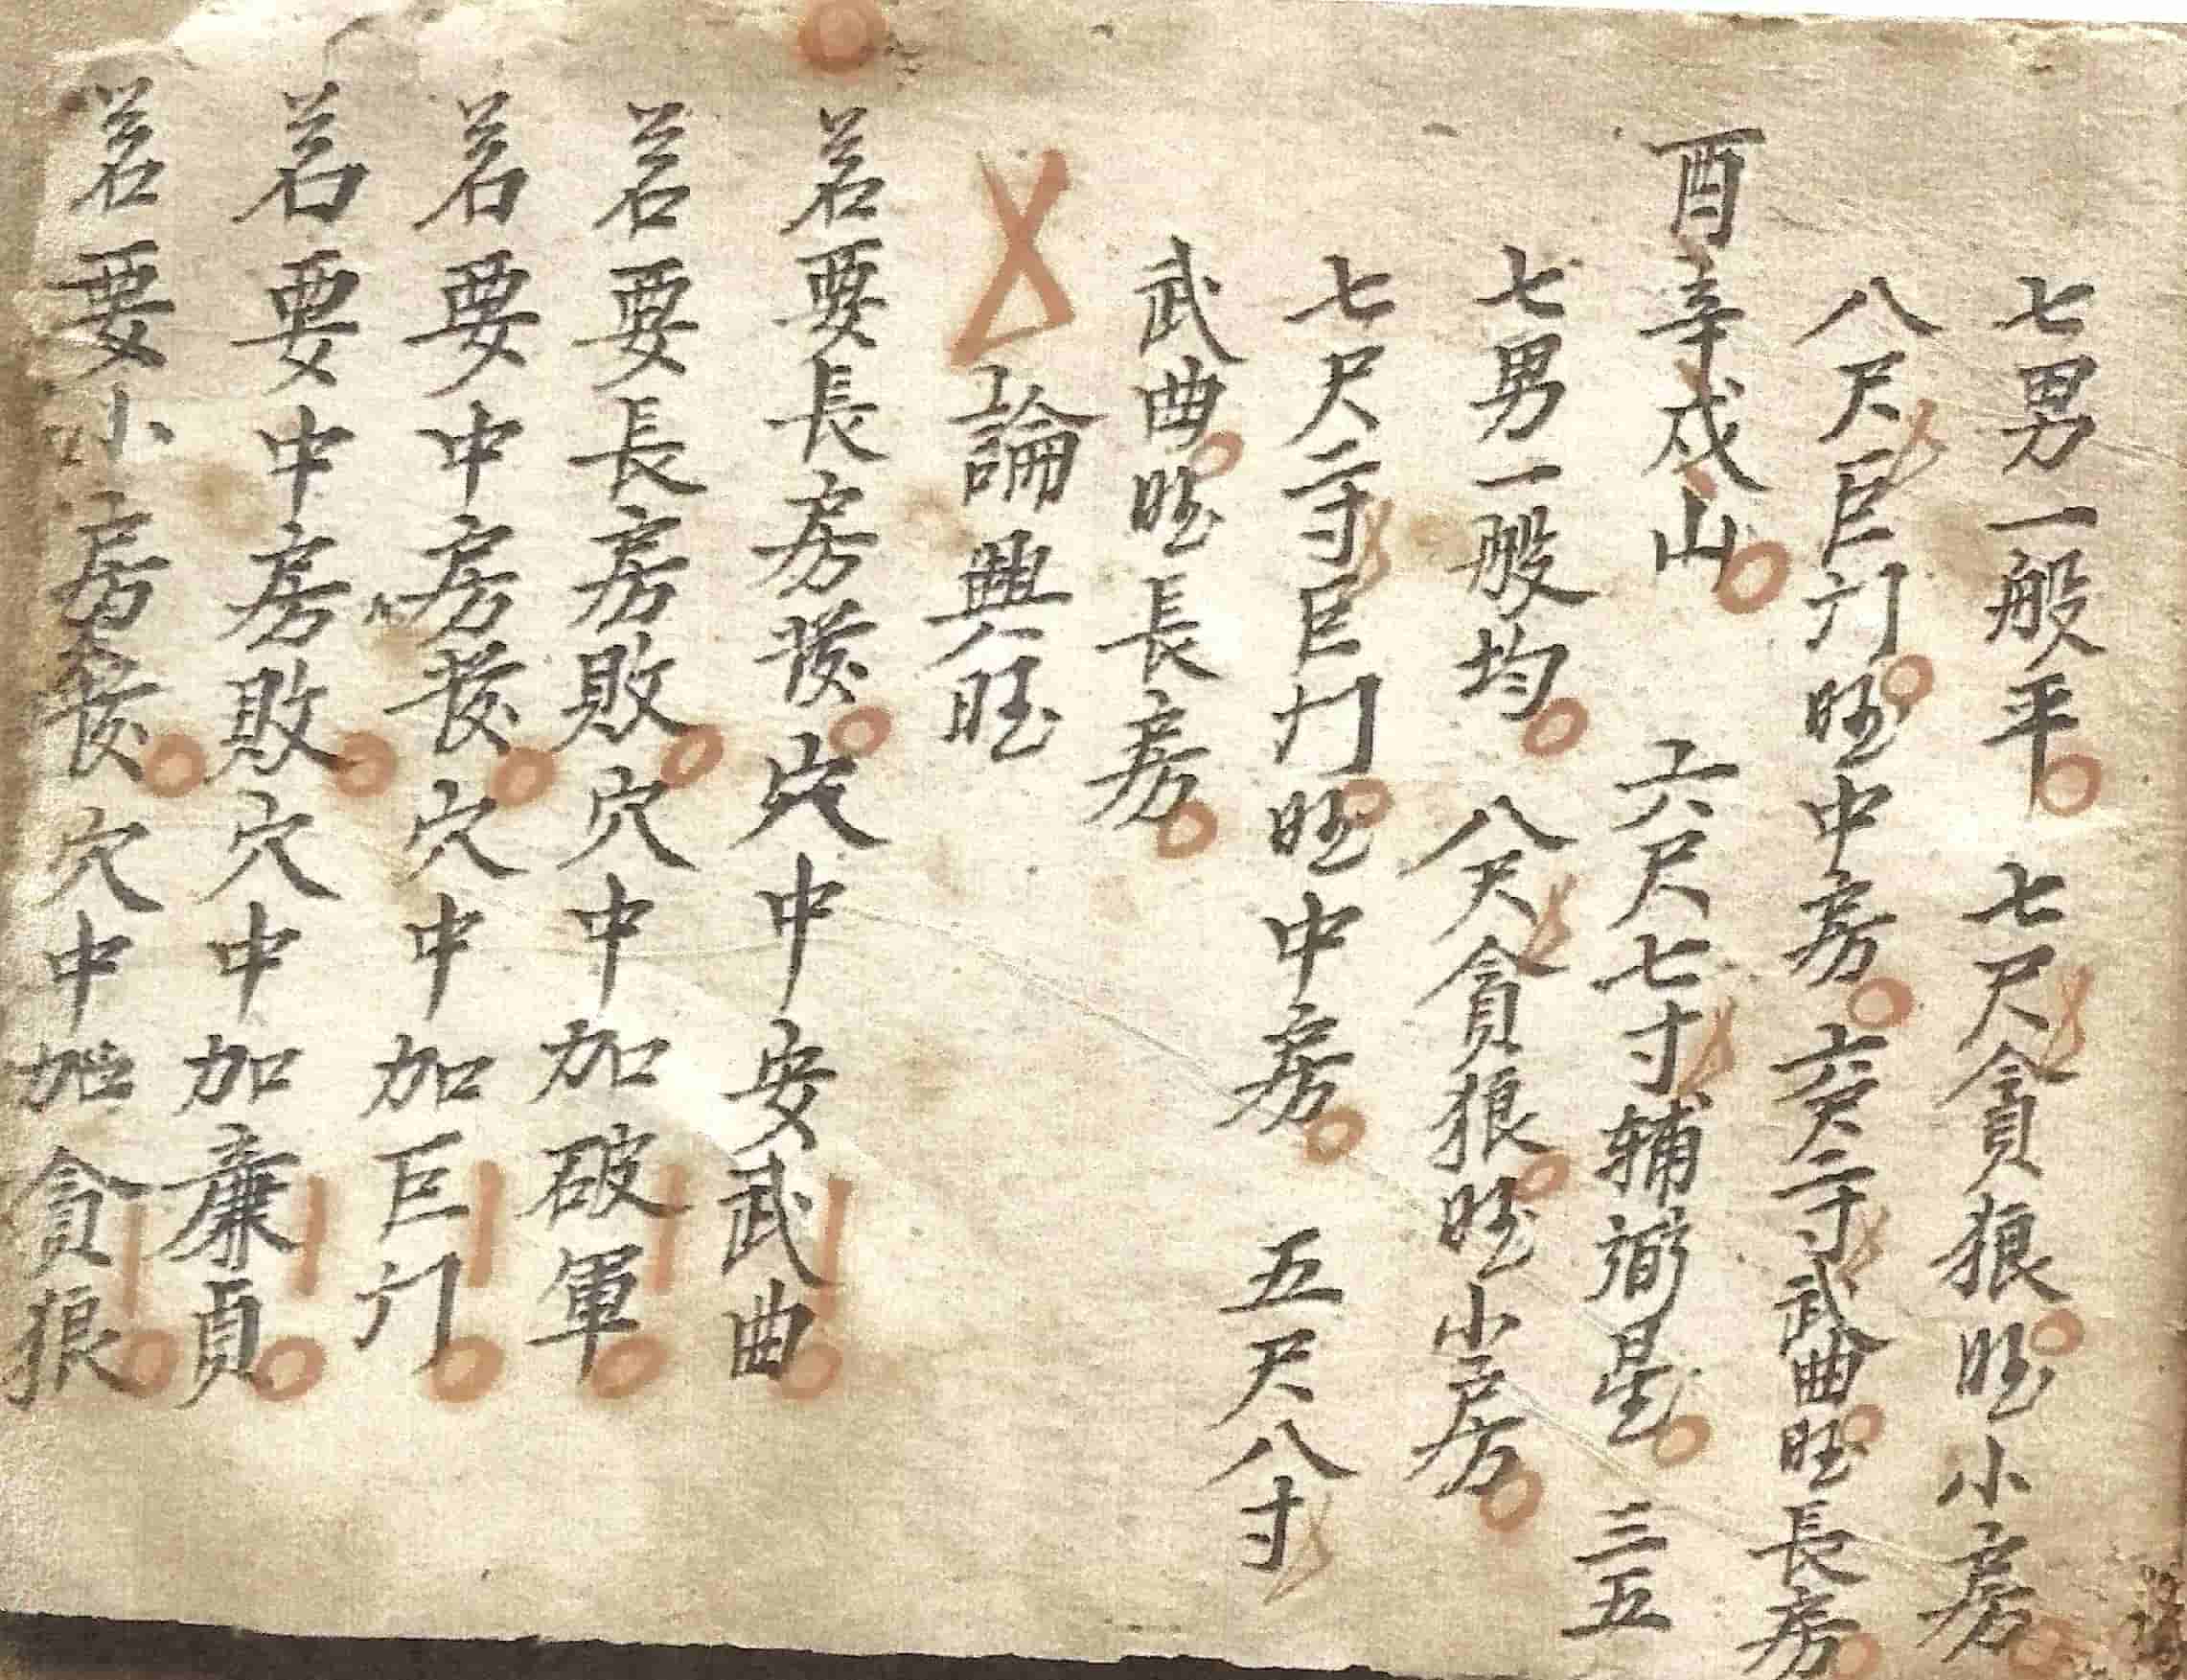 七男一般平 七尺貪狼旺小房
八尺巨门旺中房 六尺二寸武曲旺長房
酉辛戍山 六尺七寸辅弼星 三五
七男一般均 八尺貪狼旺小房
七尺二寸巨门旺中房 五尺八寸
武曲旺長房
論興旺
若要長房發穴中安武曲
若要長房敗穴中加破軍
若要中房發穴中加巨门
若要中房敗穴中加廉貞
若要小房發穴中加貪狼